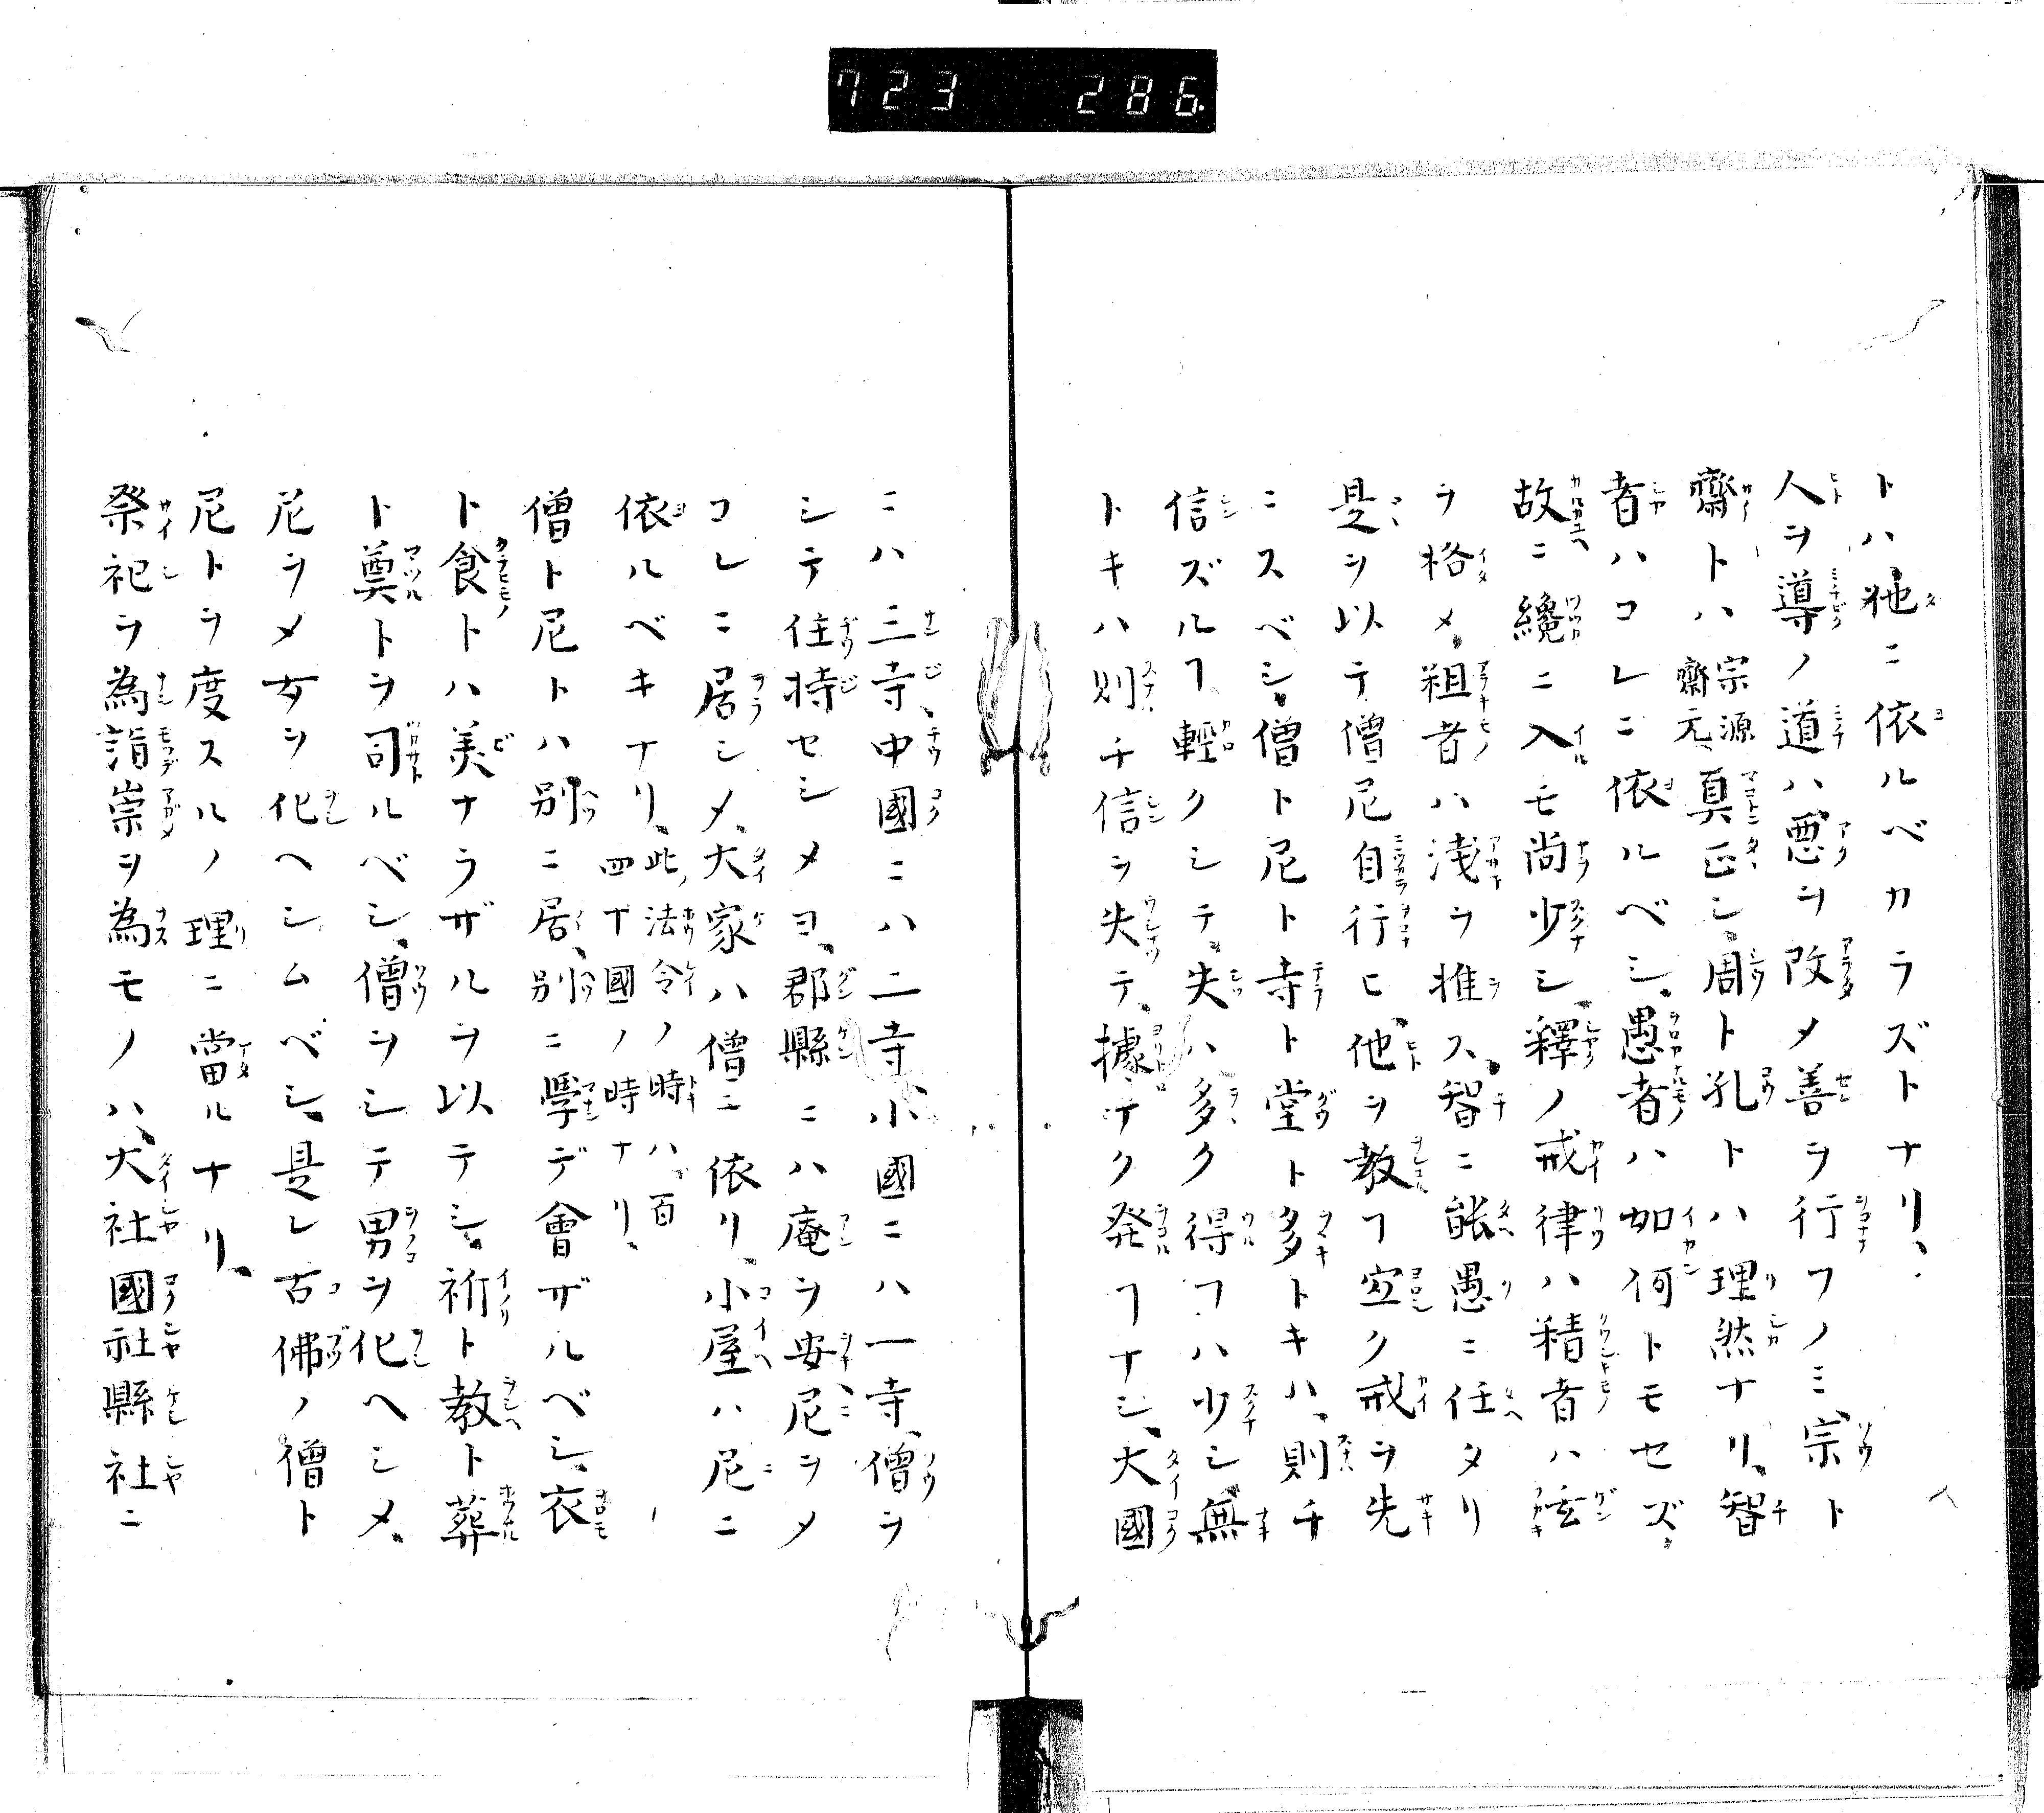 723 286.
トハ、牠ニ依ルベカラズトナリ、
人ヲ導ノ道ハ悪ヲ改メ善ヲ行フノミ、宗ト
齋トハ宗源齋元、真正シ、周ト孔トハ理然ナリ、智
者ハコレニ依ルベシ、愚者ハ如何トモセズ、
故ニ纔ニ入モ尚少シ、釋ノ戒律ハ精者ハ玄
ヲ格メ、粗者ハ浅ヲ推ス、智ニ能愚ニ任タリ
是ヲ以テ僧尼自行ヒ、他ヲ教ヿ宜ク戒ヲ先
ニスベシ、僧ト尼ト寺ト堂ト多トキハ、則チ
信ズルヿ輕クシテ、失ハ多ク得ヿハ少シ、無
トキハ則チ信ヲ失テ、據ナク発ヿナシ、大國
ニハ三寺、中國ニハ二寺、小國ニハ一寺、僧ヲ
シテ住持セシメヨ、郡縣ニハ庵ヲ安、尼ヲメ
コレニ居シメ、大家ハ僧ニ依リ、小屋ハ尼ニ
依ルベキナリ、此ノ法令ノ時ハ、百四十國ノ時ナリ、
僧ト尼トハ別ニ居、別ニ學デ會ザルベシ、衣
ト食トハ美ナラザルヲ以テシ、祈ト教ト葬
ト奠トヲ司ルベシ、僧ヲシテ男ヲ化ヘシメ、
尼ヲメ女ヲ化ヘシムベシ、是レ古佛ノ僧ト
尼トヲ度スルノ理ニ當ルナリ、
祭祀ヲ為詣崇ヲ為モノハ、大社國社縣社ニ